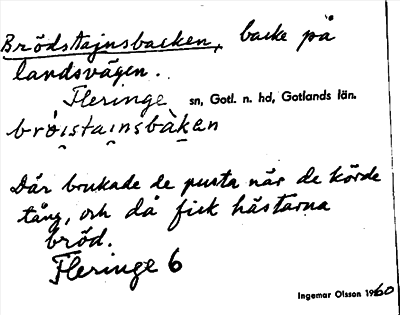 Brödstajnsbacken, backe på
landsvägen.
Fleringe sn, Gotl. n. hd, Gotlands län.
brøi̯stai̯nsbàkęn
Där brukade de pusta när de körde
tång, och då fick hästarna
bröd.
Fleringe 6
Ingemar Olsson 1960